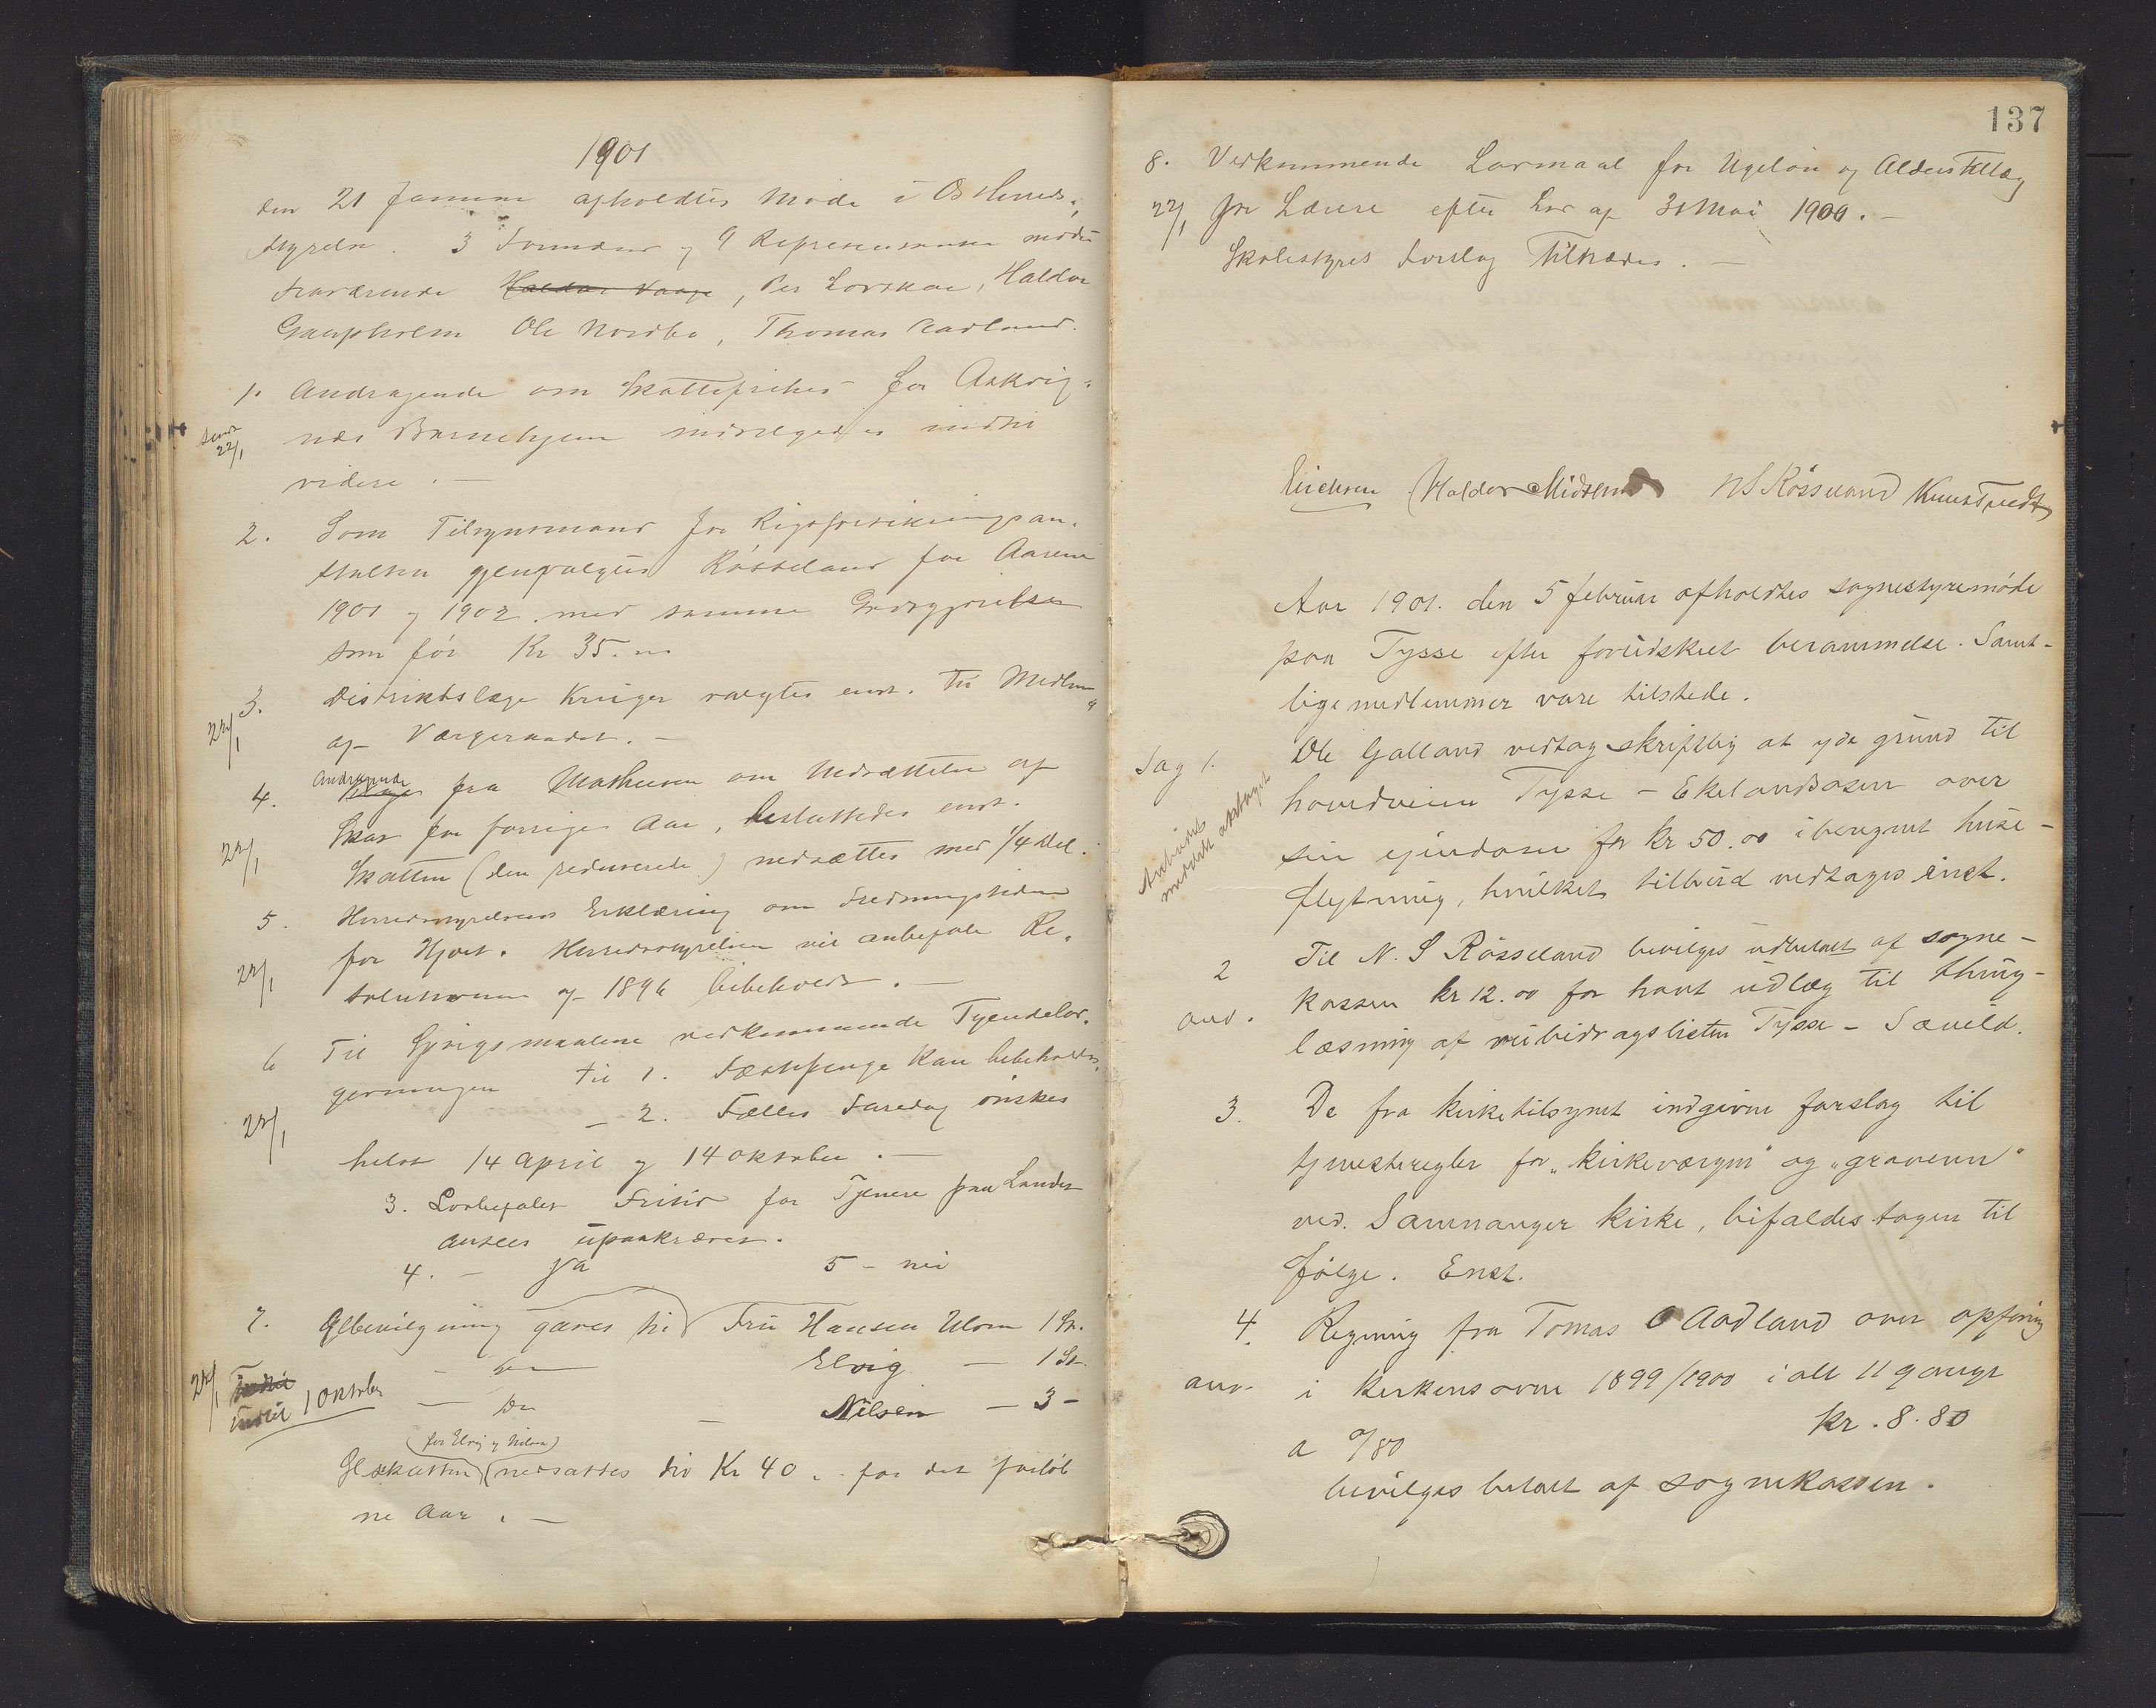 1901
den 21 Januar afholdtes Møde i Os Herreds-
styrelse. 3 Formænd og 9 Repræsentanter mødte
Fraværende Haldor Vaage, Per Lovskar, Haldor
Gaupholm Ole Nordbø, Thomas Aadland.
1. Andragende om Skattefrihed for Askvig-
sendt 22/1
næs Barnehjem indvilgedes indtil
videre. —
2. Som Tilsynsmand for Rigsforsikringsan-
stalten gjenvalgtes Røsseland for Aarene
1901 og 1902 med samme Godtgjørelse
som før Kr 35.00
3. Distriktslæge Krüger valgtes enst. til Medlem
22/1
af Værgeraadet. —
4. Andragende fra Mathiesen om Nedsættelse af
Skat for forrige Aar, besluttedes enst.
22/1
Skatten (den reducerede) nedsættes med 1/4 Del.
5. Herredsstyrelsens Erklæring om Fredningstiden
for Hjort. Herredsstyrelsen vil anbefale Re-
22/1
solutionen af 1896 bibeholdt. —
6 Til Spørgsmaalene vedkommende Tyendelov-
givningen til 1. Fæstepenge kan bibeholdes,
22/1
— 2. Fælles Faredag ønskes
helst 14 April og 14 Oktober. —
3. Lovbefalet Fritid for Tjenere paa Landet
ansees upaakrævet.
4. — Ja 5 — nei
7. Ølbevilgning gaves til Fru Hansen Ulven 1 St.
22/1 Indtil
— Do Elvig — 1 St.
indtil 1 Oktober
— Do — Nilsen — 3 —
(for Elvig og Nilsen)
Ølskatten nedsattes til Kr 40 .. for det forløb
ne Aar. —
137
8. Vedkommende Lovmaal for Ugeløn og Alderstillæg
22/1
for Lærere efter Lov af 31 Mai 1900. —
Skolestyrets Forslag tiltrædes. —
Erichsen Haldor Midtun NS Røsseland Knut Tvedt
Aar 1901. den 5 februar afholdtes sognestyremøde
paa Tysse efter forudskeet berammelse. Samt-
lige medlemmer vare tilstede.
Sag 1. Ole Galland vedtog skriftlig at yde grund til
hovedveien Tysse – Ekelandsosen over
Anbudet
meddelt vedtaget
sin eiendom for kr 50.00 iberegnet huse-
flytning, hvilket tilbud vedtages enst.
2 Til N. S Røsseland bevilges udbetalt af sogne-
kassen kr 12.00 for havt udlæg til thing-
anv.
læsning af veibidragslisten Tysse – Sæveid.
3. De fra kirketilsynet indgivne forslag til
tjenesteregler for „kirkeværgen" og „graveren"
ved. Samnanger kirke, bifaldes tagen til
følge. Enst.
4. Regning fra Tomas O Aadland over opfyring
anv. i kirkens ovne 1899/1900 i alt 11 gange
a 0/80 kr. 8.80
bevilges betalt af sognekassen.